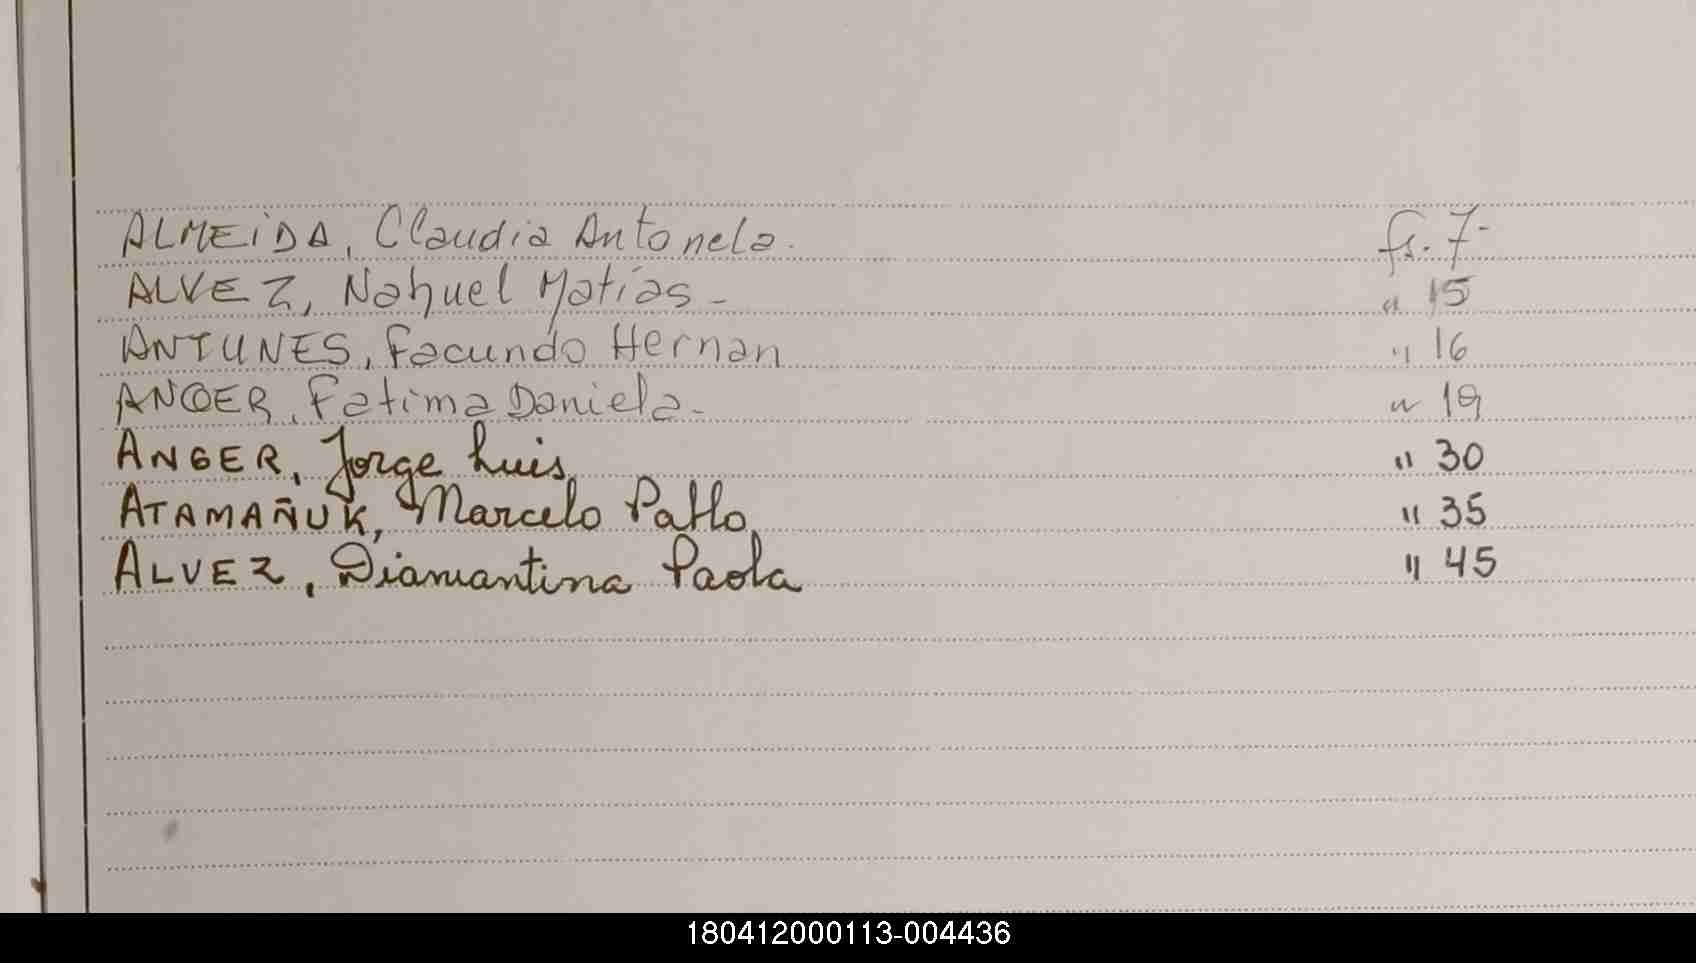 ALMEiDA, Claudia Antonela. fs. 7-
ALVEZ, Nahuel Matías- " 15
ANTUNES, Facundo Hernan " 16
ANGER, Fatima Daniela- " 19
ANGER, Jorge Luis " 30
ATAMAÑUK, Marcelo Pablo " 35
ALVEZ, Diamantina Paola " 45
180412000113-004436